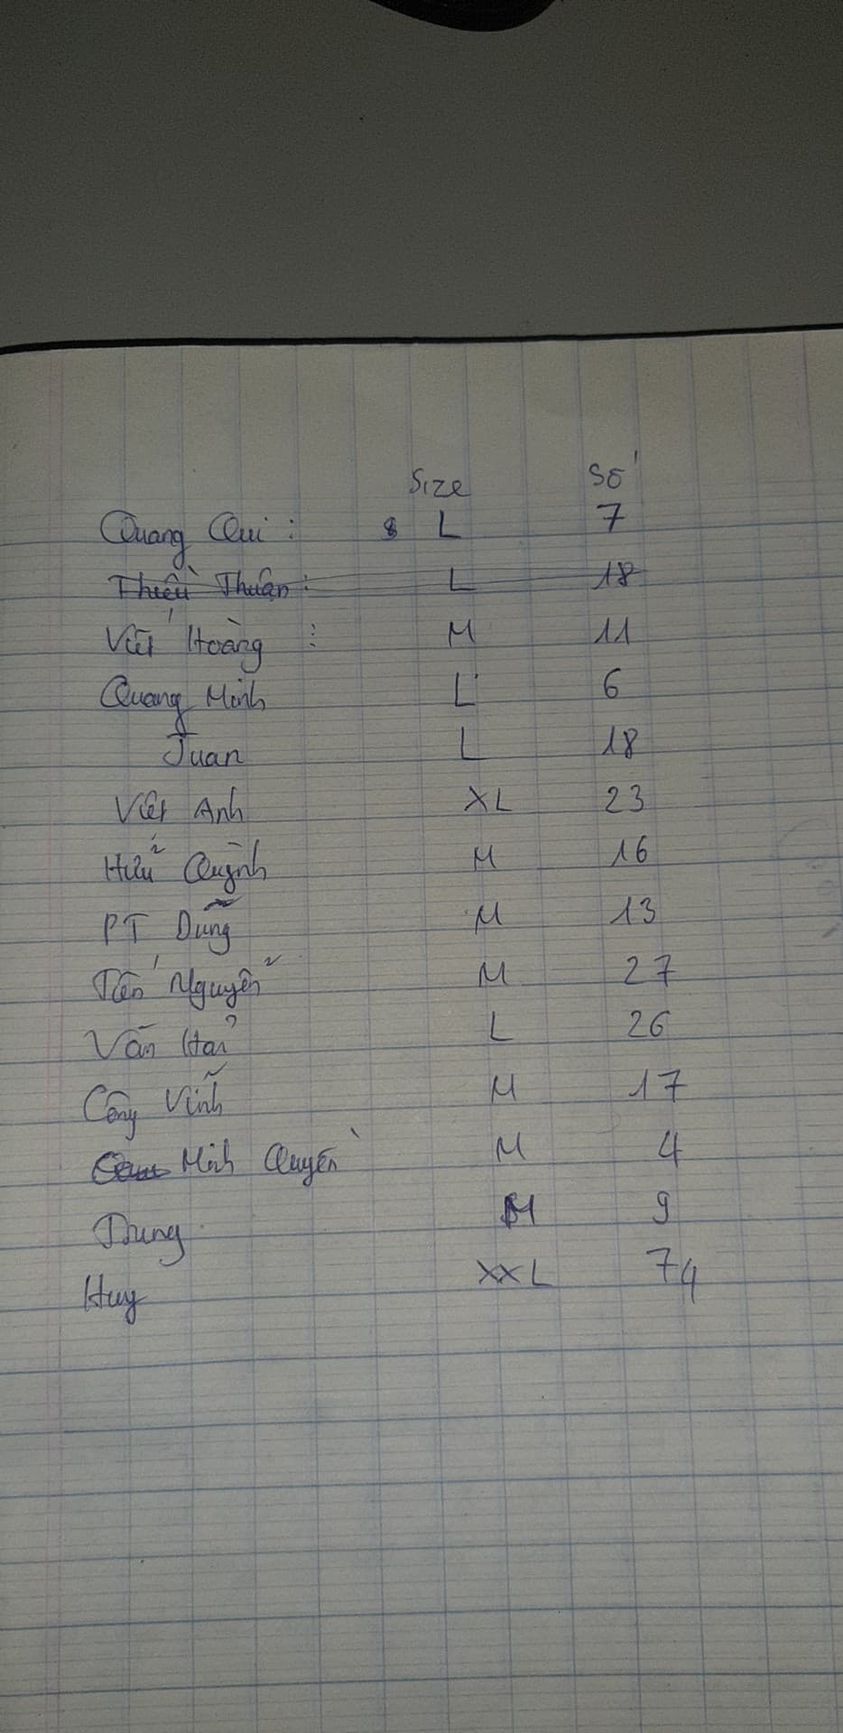 Size Số
Quang Qui : L 7
Thiều Thuận : L 18
Viết Hoàng : M 11
Quang Minh L 6
Tuan L 18
Việt Anh XL 23
Hữu Quỳnh M 16
PT Dũng M 13
Tiến Nguyễn M 27
Văn Hải L 26
Công Vinh M 17
Minh Quyền M 4
Trung M 9
Huy XXL 74